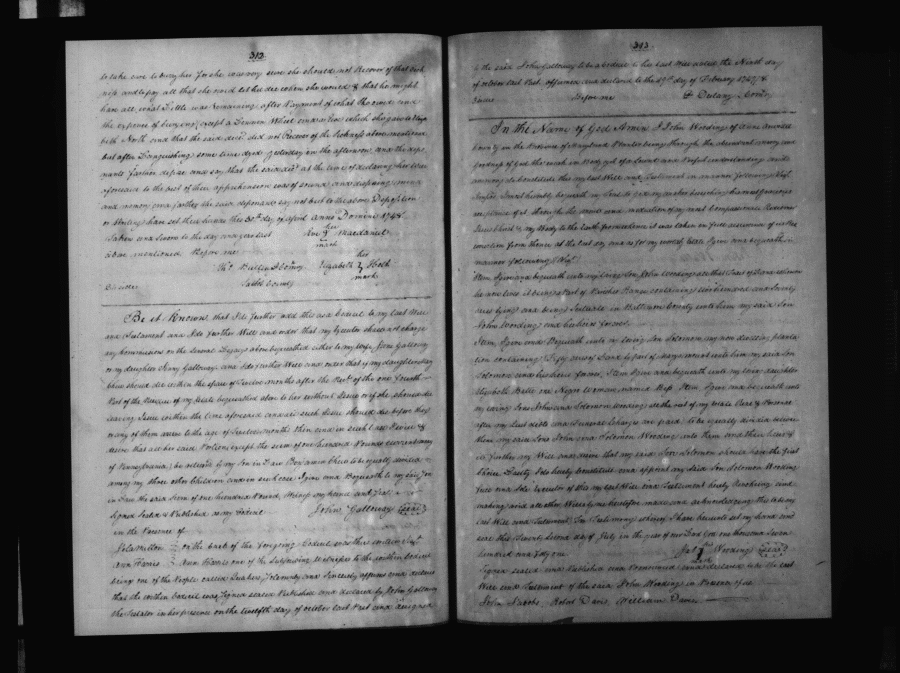 313
to take care to bury her for she was very sure she should not Recover of that Sick
ness and to pay all that she owed to the day when she would & that he might
have all what Little was remaining after Payment of what She owed and
the expence of burying except a
beth North and that the said did not Recover of the Sickness above mentioned
but after Languishing some time dyed yesterday in the afternoon and the depo
nants farther depose and say that the said at the time of declaring her Will
aforesaid to the best of their apprehension was of sound and disposing mind
and memory and farther the said deponants say not but to the above Deposition
have set their hands the 30th day of April Anno Domini 1748
Taken and Sworn to the day and year last
above mentioned Before me
her
mark
her
Elizabeth
mark
Talbot County
Be it Known that I do further add this as a Codicil to my Last Will
and Testament and I do further Will and order that my Executor shall not charge
any Commissions on the several Legacys above bequeathed either to my Wife Jane Galloway
or my daughter Jenny Galloway and I do further Will and order that if my daughter Mary
Chew should die within the space of Twelve months after the of the one fourth
Part of the Residue of my Estate bequeathed above to her without Issue or if she should die
leaving Issue within the time aforesaid and such Issue should die before they
or any of them arrive to the age of Twelve months then and in such Case I Devise &
Desire that all her said Portion except the sum of one hundred Pounds current money
of Pensylvania be returned by my Son in Law Benjamin Chew to be equally divided
among my three other Children and in such case I give and Bequeath to my said Son
in Law the said Sum of one hundred Pounds Witness my hand and Seal
Signed Sealed & Published as my Codicil John Galloway Seal
in the Presence of
on the back of the foregoing Codicil was thus written
Ann Harris Ann Harris one of the Subscribing Witnesses to the within Codicil
being one of the People called Quakers Solemnly and Sincerely affirms and declares
that the within Codicil was Signed Sealed Published and declared by John Galloway
the Testator in her presence on the twelfth day of October last Past and Assigned
313
by the said John Galloway to be a Codicil to his Last Will dated the Ninth day
of October last Past affirmed and declared to the 17th day of February 1747/8
Before me D Dulany Comry
In the Name of God Amen I John Wooding of Anne Arundel
County in the Province of Maryland Planter being through the abundant mercy and
goodness of God tho weak in Body yet of a sound and Perfect understanding and
memory do Constitute this my last Will and Testament in manner following Viz
Imps I most humbly bequeath my Soul to God my maker beseeching his most gracious
acceptance of it through the merits and mediation of my most Compassionate Redeemer
Jesus Christ & my Body to the Earth from whence it was taken in full assurance of its Resur
rection from thence at the last day and as for my worldly Estate I give and bequeath in
manner following Viz
Item I give and bequeath unto my loving Son John Wooding all that Part of Land whereon
he now lives it being a Part of Ranges containing One Hundred and Seventy
acres lying and being Scituate in Baltimore County unto him my said Son
John Wooding and his heirs forever
Item I give and Bequeath unto my loving Son Solomon my now dwelling planta
tion containing Fifty acres of Land & part of unto him my said Son
Solomon and his heirs forever Item I give and bequeath unto my loving daughter
Elizabeth Battee one Negro Woman named Bess Item I give and bequeath unto
my loving Sons John and Solomon Wooding all the rest of my Estate Real & Personal
after my Just debts and Funeral Charges are paid to be equally divided between
them my said Sons John and Solomon Wooding unto them and their heirs &
it is further my Will and desire that my said Son Solomon should have the first
Choice Lastly I do hereby constitute and appoint my said Son Solomon Wooding
full and Sole Executor of this my last Will and Testament hereby Revoking and
making void all other Wills by me heretofore made and acknowledging this to be my
last Will and Testament In Testimony whereof I have hereunto set my hand and
seal this Twenty Second day of July in the year of our Lord God one thousand Seven
hundred and forty one
his
John Wooding Seal
mark
Signed sealed and Published and Pronounced and declared to be the last
Will and Testament of the said John Wooding in Presence of us
John Jacobs, Robert Davis, William Davis